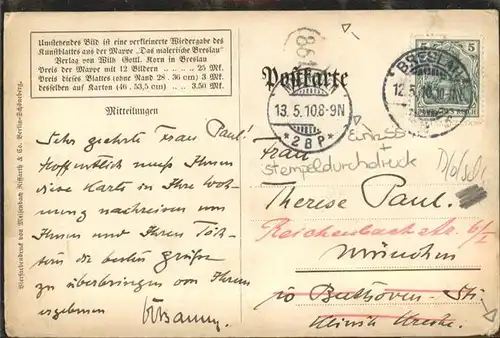 Umstehendes Bild ist eine verkleinerte Wiedergabe des
Kunstblattes aus der Mappe „Das malerische Breslau"
Verlag von Wilh. Gottl. Korn in Breslau
Preis der Mappe mit 12 Bildern . . . . . 25 Mk.
Preis dieses Blattes (ohne Rand 28 . 36 cm) 3 Mk.
desselben auf Karton (46 . 53,5 cm) . . 3.50 Mk.
Mitteilungen
Sehr geehrte Frau Paul!
Hoffentlich muss Ihnen
diese Karte in Ihre Woh-
nung nachreisen um
Ihnen und Ihren Töch-
tern die besten Grüße
zu überbringen von Ihrem
ergebenen
Vierfarbendruck von Meisenbach Riffarth & Co. Berlin-Schöneberg.
Postkarte
13.5.10.8-9N
* 2 B P *
BRESLAU
12.5.10.
5
5
Einriss
+
Stempeldurchdruck
Frau
Therese Paul.
Reichenbachstr.
München
Beethoven-Str.
Klinik